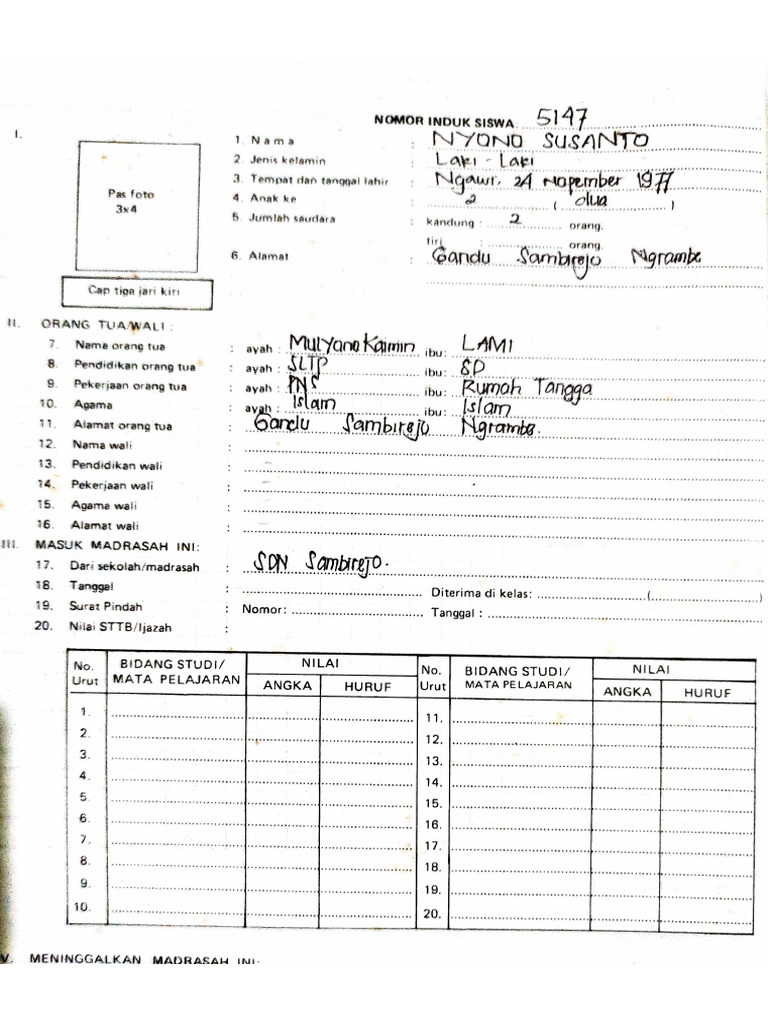 NOMOR INDUK SISWA: 5147
I.
Pas foto
3x4
Cap tiga jari kiri
1. Nama : NYONO SUSANTO
2. Jenis kelamin : Laki - Laki
3. Tempat dan tanggal lahir : Ngawi, 24 Nopember 1977
4. Anak ke : 2 ( dua )
5. Jumlah saudara : kandung : 2 orang.
tiri : orang.
6. Alamat : Gandu Sambirejo Ngrambe
II. ORANG TUA/WALI :
7. Nama orang tua : ayah : Mulyono Kaimin ibu: LAMI
8. Pendidikan orang tua : ayah : SLTP ibu: SD
9. Pekerjaan orang tua : ayah : PNS ibu: Rumah Tangga
10. Agama : ayah : Islam ibu: Islam
11. Alamat orang tua : Gandu Sambirejo Ngrambe.
12. Nama wali :
13. Pendidikan wali : -
14. Pekerjaan wali : -
15. Agama wali : -
16. Alamat wali : -
III. MASUK MADRASAH INI:
17. Dari sekolah/madrasah : SDN Sambirejo.
18. Tanggal : Diterima di kelas: ( )
19. Surat Pindah : Nomor: Tanggal :
20. Nilai STTB/Ijazah :
No. Urut BIDANG STUDI/ MATA PELAJARAN NILAI ANGKA HURUF No. Urut BIDANG STUDI/ MATA PELAJARAN NILAI ANGKA HURUF
1. 11.
2. 12.
3. 13.
4. 14.
5. 15.
6. 16.
7. 17.
8. 18.
9. 19.
10. 20.
V. MENINGGALKAN MADRASAH INI: